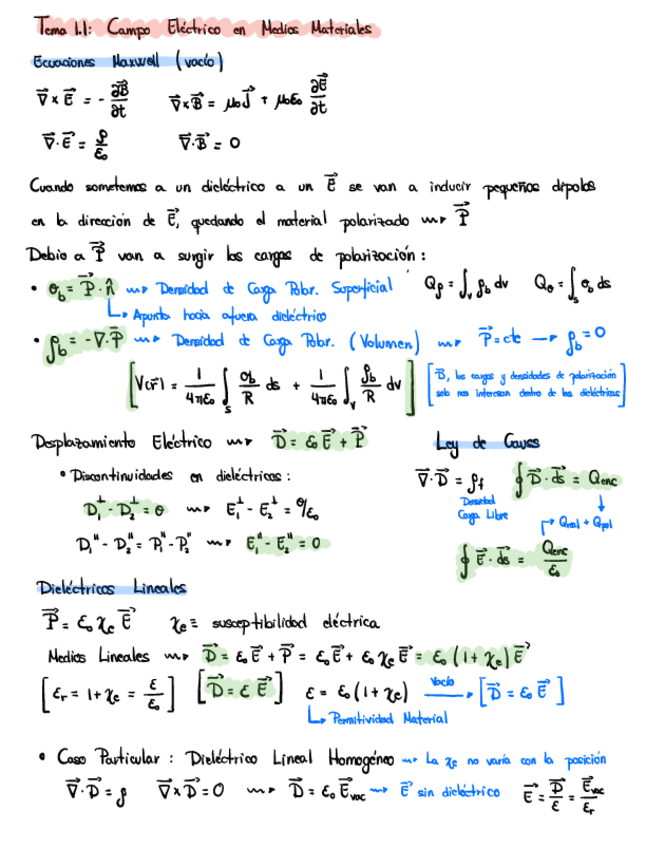 Tema 1.1: Campo Eléctrico en Medios Materiales
Ecuaciones Maxwell (vacío)
∇⃗ × E⃗ = - ∂B⃗/∂t    ∇⃗ × B⃗ = μ₀ J⃗ + μ₀ε₀ ∂E⃗/∂t
∇⃗ · E⃗ = ρ/ε₀    ∇⃗ · B⃗ = 0
Cuando sometemos a un dieléctrico a un E⃗ se van a inducir pequeños dipolos
en la dirección de E⃗, quedando el material polarizado ⇝ P⃗
Debio a P⃗ van a surgir las cargas de polarización:
• σ_b = P⃗ · n̂ ⇝ Densidad de Carga Polar. Superficial    Q_ρ = ∫_v ρ_b dv    Q_σ = ∫_s σ_b ds
↳ Apunta hacia afuera dieléctrico
• ρ_b = -∇ · P⃗ ⇝ Densidad de Carga Polar. (Volumen) ⇝ P⃗ = cte → ρ_b = 0
[V(r⃗) = 1/4πε₀ ∫_s σ_b/R ds + 1/4πε₀ ∫_v ρ_b/R dv]
[P⃗, las cargas y densidades de polarización
solo nos interesan dentro de los dieléctricos]
Desplazamiento Eléctrico ⇝ D⃗ = ε₀ E⃗ + P⃗
• Discontinuidades en dieléctricos:
D₁^⊥ - D₂^⊥ = σ ⇝ E₁^⊥ - E₂^⊥ = σ/ε₀
D₁^" - D₂^" = P₁^" - P₂^" ⇝ E₁^" - E₂^" = 0
Ley de Gauss
∇⃗ · D⃗ = ρ_f    ∮ D⃗ · ds⃗ = Q_enc
Densidad
Carga Libre
↓
Q_real + Q_pol
∮ E⃗ · ds⃗ = Q_enc/ε₀
Dieléctricos Lineales
P⃗ = ε₀ χ_e E⃗    χ_e ≡ susceptibilidad eléctrica
Medios Lineales ⇝ D⃗ = ε₀ E⃗ + P⃗ = ε₀ E⃗ + ε₀ χ_e E⃗ = ε₀ (1 + χ_e) E⃗
[ε_r = 1 + χ_e = ε/ε₀]    [D⃗ = ε E⃗]    ε = ε₀ (1 + χ_e)    Vacío →    [D⃗ = ε₀ E⃗]
↳ Permitividad Material
• Caso Particular: Dieléctrico Lineal Homogéneo ⇝ La χ_e no varía con la posición
∇⃗ · D⃗ = ρ    ∇⃗ × D⃗ = 0 ⇝ D⃗ = ε₀ E⃗_vac ⇝ E⃗ sin dieléctrico    E⃗ = D⃗/ε = E⃗_vac/ε_r